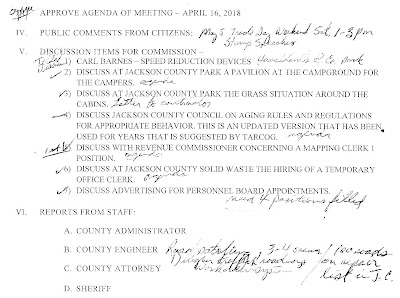 APPROVE AGENDA OF MEETING – APRIL 16, 2018
IV. PUBLIC COMMENTS FROM CITIZENS: May 5 Trade Day Weekend Sat, 1-3 pm
Stump Speeches
V. DISCUSSION ITEMS FOR COMMISSION –
1) CARL BARNES – SPEED REDUCTION DEVICES
2) DISCUSS AT JACKSON COUNTY PARK A PAVILION AT THE CAMPGROUND FOR
THE CAMPERS. agenda
3) DISCUSS AT JACKSON COUNTY PARK THE GRASS SITUATION AROUND THE
CABINS. Letter to contractor
4) DISCUSS JACKSON COUNTY COUNCIL ON AGING RULES AND REGULATIONS
FOR APPROPRIATE BEHAVIOR. THIS IS AN UPDATED VERSION THAT HAS BEEN
USED FOR YEARS THAT IS SUGGESTED BY TARCOG. agenda
5) DISCUSS WITH REVENUE COMMISSIONER CONCERNING A MAPPING CLERK 1
POSITION. agenda
6) DISCUSS AT JACKSON COUNTY SOLID WASTE THE HIRING OF A TEMPORARY
OFFICE CLERK. agenda
7) DISCUSS ADVERTISING FOR PERSONNEL BOARD APPOINTMENTS.
need 4 positions filled
VI. REPORTS FROM STAFF:
A. COUNTY ADMINISTRATOR
B. COUNTY ENGINEER 3-4 crews / 100 roads
C. COUNTY ATTORNEY on repair
list in J.C.
D. SHERIFF